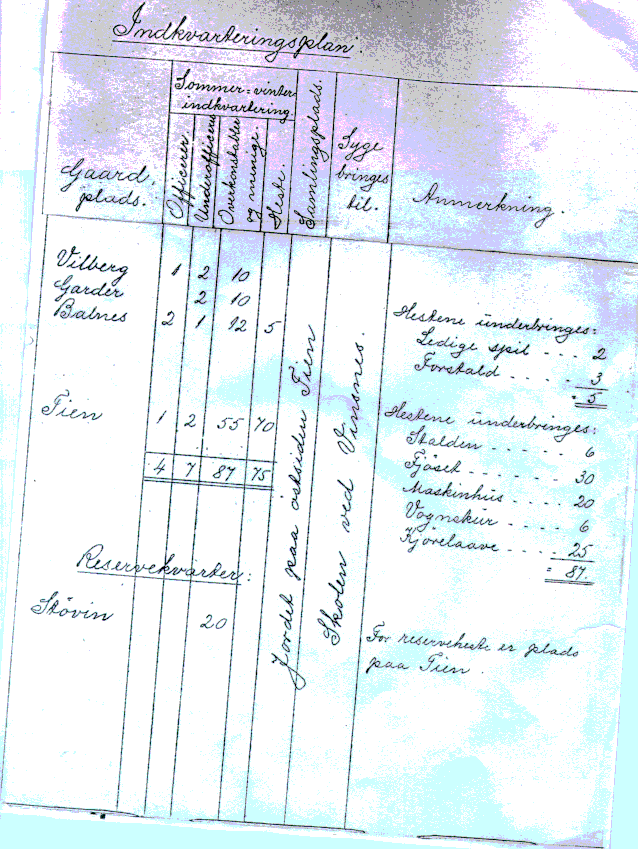 Indkvarteringsplan
Sommer= vinter
indkvartering.
Gaard,
plads.
Officerer.
Underofficerer
Overkonstabler
og menige.
Heste.
Samlingsplads.
Syge
bringes
til.
Anmerkning.
Vilberg 1 2 10
Garder 2 10
Balnes 2 1 12 5
Hestene underbringes:
Ledige spil - - - 2
Forstald - - - - 3
= 5
Tien 1 2 55 70
4 7 87 75
Hestene underbringes:
Stalden - - - - - 6
Fjöset - - - - - - 30
Maskinhus - - - - 20
Vognskur - - - - 6
Kjörelaave - - - - 25
= 87.
Jordet paa östsiden Tien
Skolen ved Vinsnes.
Reservekvarter:
Stövin 20
For reserveheste er plads
paa Tien.